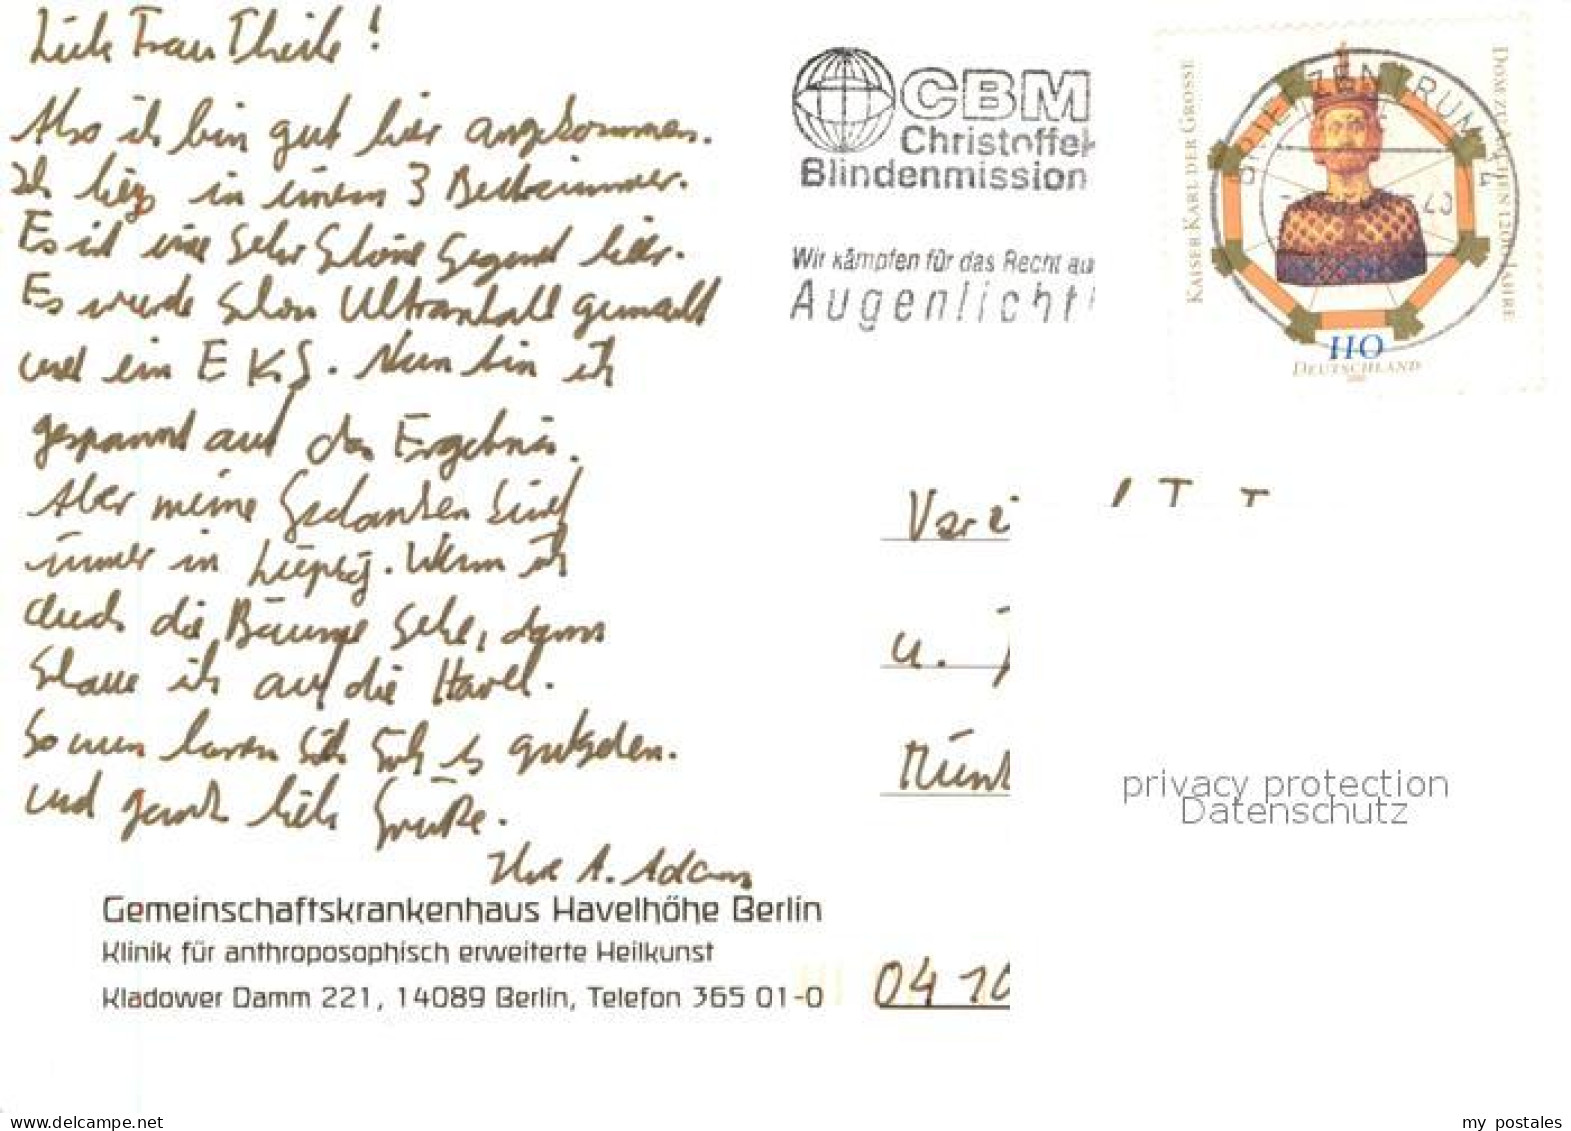 Liebe Frau Theile!
Also ich bin gut hier angekommen.
Ich liege in einem 3 Bettzimmer.
Es ist eine sehr schöne Gegend hier.
Es wurde schon Ultraschall gemacht
und ein EKG. Nun bin ich
gespannt auf das Ergebnis.
Aber meine Gedanken sind
immer in Leipzig. Wenn ich
auch die Bäume sehe, dann
schaue ich auf die Havel.
So nun lassen Sie sich es gutgehen.
und ganz liebe Grüße.
Ihre A. Adam
Gemeinschaftskrankenhaus Havelhöhe Berlin
Klinik für anthroposophisch erweiterte Heilkunst
Kladower Damm 221, 14089 Berlin, Telefon 365 01-0
CBM
Christoffel
Blindenmission
Wir kämpfen für das Recht au
Augenlicht!
KAISER KARL DER GROSSE
DOM ZU AACHEN 1200 JAHRE
BRIEFZENTRUM 14
110
DEUTSCHLAND
u.
04 10
privacy protection
Datenschutz
www.delcampe.net
my_postales